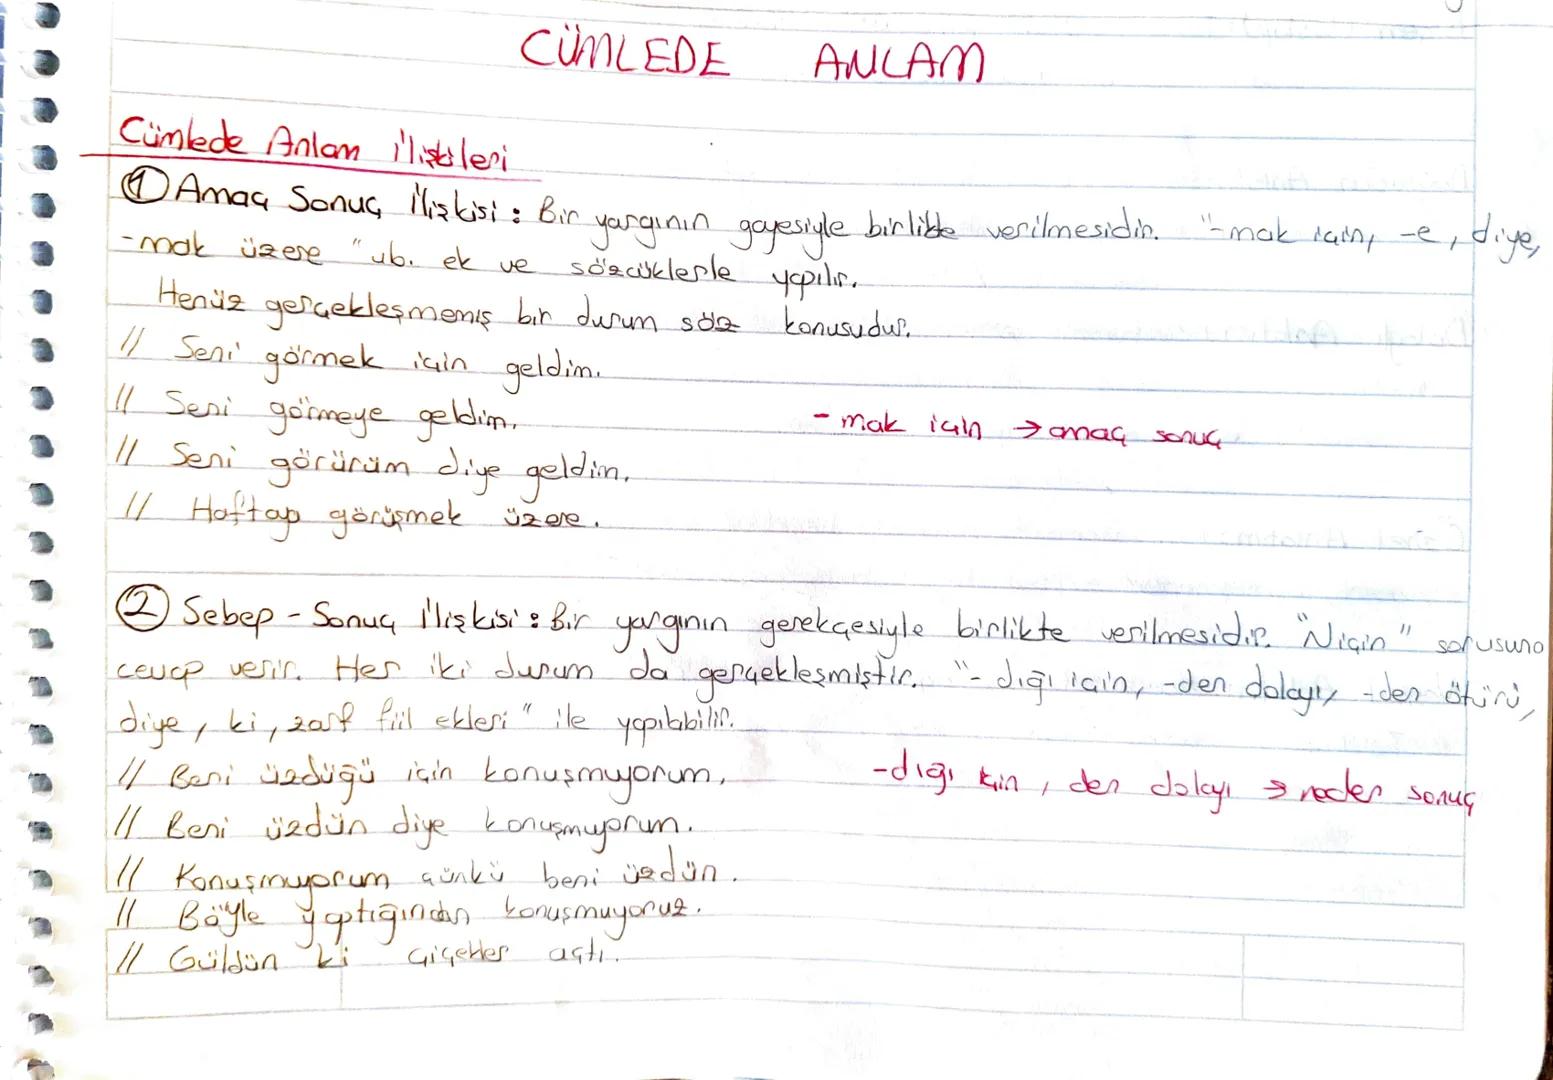 CÜMLEDE ANLAM
Cümlede Anlam İlişkileri
① Amaç Sonuç İlişkisi : Bir yargının gayesiyle birlikte verilmesidir. "-mak için, -e, diye,
-mak üzere" vb. ek ve sözcüklerle yapılır.
Henüz gerçekleşmemiş bir durum söz konusudur.
// Seni görmek için geldim.
// Seni görmeye geldim.
- mak için → amaç sonuç
// Seni görürüm diye geldim.
// Haftap görüşmek üzere.
② Sebep - Sonuç İlişkisi : Bir yargının gerekçesiyle birlikte verilmesidir. "Niçin" sorusuna
cevap verir. Her iki durum da gerçekleşmiştir. "- dığı için, -den dolayı, -den ötürü,
diye, ki, zarf fiil ekleri" ile yapılabilir.
// Beni üzdüğü için konuşmuyorum.
-dığı için, den dolayı → neden sonuç
// Beni üzdün diye konuşmuyorum.
// Konuşmuyorum çünkü beni üzdün.
// Böyle yaptığından konuşmuyoruz.
// Güldün ki çiçekler açtı.